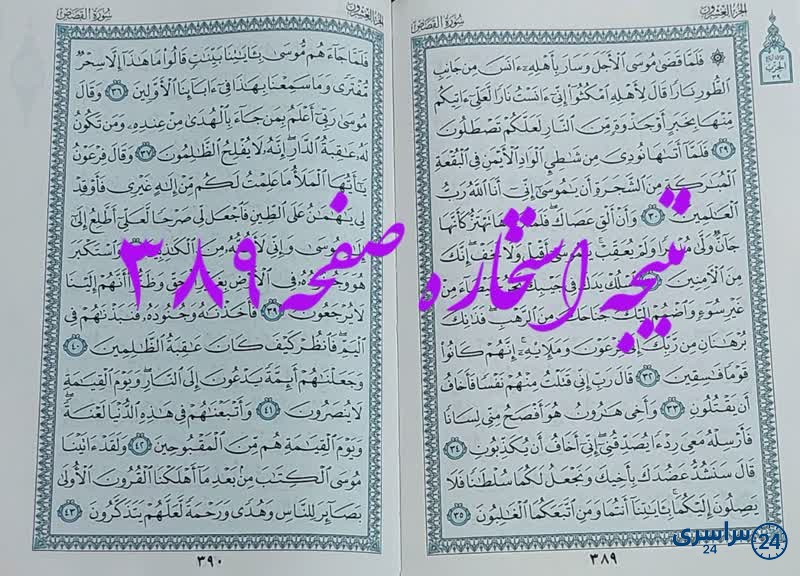 الجزء العشرون
سورة القصص
۞ فَلَمَّا قَضَىٰ مُوسَى ٱلْأَجَلَ وَسَارَ بِأَهْلِهِۦٓ ءَانَسَ مِن جَانِبِ
ٱلطُّورِ نَارًا قَالَ لِأَهْلِهِ ٱمْكُثُوٓا۟ إِنِّىٓ ءَانَسْتُ نَارًا لَّعَلِّىٓ ءَاتِيكُم
مِّنْهَا بِخَبَرٍ أَوْ جَذْوَةٍ مِّنَ ٱلنَّارِ لَعَلَّكُمْ تَصْطَلُونَ
٢٩ فَلَمَّآ أَتَىٰهَا نُودِىَ مِن شَٰطِئِ ٱلْوَادِ ٱلْأَيْمَنِ فِى ٱلْبُقْعَةِ
ٱلْمُبَٰرَكَةِ مِنَ ٱلشَّجَرَةِ أَن يَٰمُوسَىٰٓ إِنِّىٓ أَنَا ٱللَّهُ رَبُّ
ٱلْعَٰلَمِينَ ٣٠ وَأَنْ أَلْقِ عَصَاكَ فَلَمَّا تَهْتَزُّ كَأَنَّهَا
جَآنٌّ وَلَّىٰ مُدْبِرًا وَلَمْ يُعَقِّبْ يَٰمُوسَىٰٓ أَقْبِلْ وَلَا تَخَفْ إِنَّكَ
مِنَ ٱلْءَامِنِينَ ٱسْلُكْ يَدَكَ فِى جَيْبِكَ مِنْ
غَيْرِ سُوٓءٍ وَٱضْمُمْ إِلَيْكَ جَنَاحَكَ مِنَ ٱلرَّهْبِ فَذَٰنِكَ
بُرْهَٰنَانِ مِن رَّبِّكَ إِلَىٰ فِرْعَوْنَ وَمَلَإِي۟هِۦٓ إِنَّهُمْ كَانُوا۟
قَوْمًا فَٰسِقِينَ ٣٢ قَالَ رَبِّ إِنِّى قَتَلْتُ مِنْهُمْ نَفْسًا فَأَخَافُ
أَن يَقْتُلُونِ ٣٣ وَأَخِى هَٰرُونُ هُوَ أَفْصَحُ مِنِّى لِسَانًا
فَأَرْسِلْهُ مَعِىَ رِدْءًا يُصَدِّقُنِىٓ إِنِّىٓ أَخَافُ أَن يُكَذِّبُونِ ٣٤
قَالَ سَنَشُدُّ عَضُدَكَ بِأَخِيكَ وَنَجْعَلُ لَكُمَا سُلْطَٰنًا فَلَا
يَصِلُونَ إِلَيْكُمَا بِـَٔايَٰتِنَآ أَنتُمَا وَمَنِ ٱتَّبَعَكُمَا ٱلْغَٰلِبُونَ ٣٥
٣٨٩
الجزء العشرون
سورة القصص
فَلَمَّا جَآءَهُم مُّوسَىٰ بِـَٔايَٰتِنَا بَيِّنَٰتٍ قَالُوا۟ مَا هَٰذَآ إِلَّا سِحْرٌ
مُّفْتَرًى وَمَا سَمِعْنَا بِهَٰذَا فِىٓ ءَابَآئِنَا ٱلْأَوَّلِينَ ٣٦ وَقَالَ
مُوسَىٰ رَبِّىٓ أَعْلَمُ بِمَن جَآءَ بِٱلْهُدَىٰ مِنْ عِندِهِۦ وَمَن تَكُونُ
لَهُۥ عَٰقِبَةُ ٱلدَّارِ إِنَّهُۥ لَا يُفْلِحُ ٱلظَّٰلِمُونَ ٣٧ وَقَالَ فِرْعَوْنُ
يَٰٓأَيُّهَا ٱلْمَلَأُ مَا عَلِمْتُ لَكُم مِّنْ إِلَٰهٍ غَيْرِى فَأَوْقِدْ
لِى يَٰهَٰمَٰنُ عَلَى ٱلطِّينِ فَٱجْعَل لِّى صَرْحًا لَّعَلِّىٓ أَطَّلِعُ إِلَىٰٓ
إِلَٰهِ مُوسَىٰ وَإِنِّى لَأَظُنُّهُۥ مِنَ ٱلْكَٰذِبِينَ وَٱسْتَكْبَرَ
هُوَ وَجُنُودُهُۥ فِى ٱلْأَرْضِ بِغَيْرِ ٱلْحَقِّ وَظَنُّوٓا۟ أَنَّهُمْ إِلَيْنَا
لَا يُرْجَعُونَ ٣٩ فَأَخَذْنَٰهُ وَجُنُودَهُۥ فَنَبَذْنَٰهُمْ فِى
ٱلْيَمِّ فَٱنظُرْ كَيْفَ كَانَ عَٰقِبَةُ ٱلظَّٰلِمِينَ ٤٠
وَجَعَلْنَٰهُمْ أَئِمَّةً يَدْعُونَ إِلَى ٱلنَّارِ وَيَوْمَ ٱلْقِيَٰمَةِ
لَا يُنصَرُونَ ٤١ وَأَتْبَعْنَٰهُمْ فِى هَٰذِهِ ٱلدُّنْيَا لَعْنَةً
وَيَوْمَ ٱلْقِيَٰمَةِ هُم مِّنَ ٱلْمَقْبُوحِينَ ٤٢ وَلَقَدْ ءَاتَيْنَا
مُوسَى ٱلْكِتَٰبَ مِنۢ بَعْدِ مَآ أَهْلَكْنَا ٱلْقُرُونَ ٱلْأُولَىٰ
بَصَآئِرَ لِلنَّاسِ وَهُدًى وَرَحْمَةً لَّعَلَّهُمْ يَتَذَكَّرُونَ ٤٣
٣٩٠
نتیجه استخاره صفحه ۳۸۹
سراسری
24
24